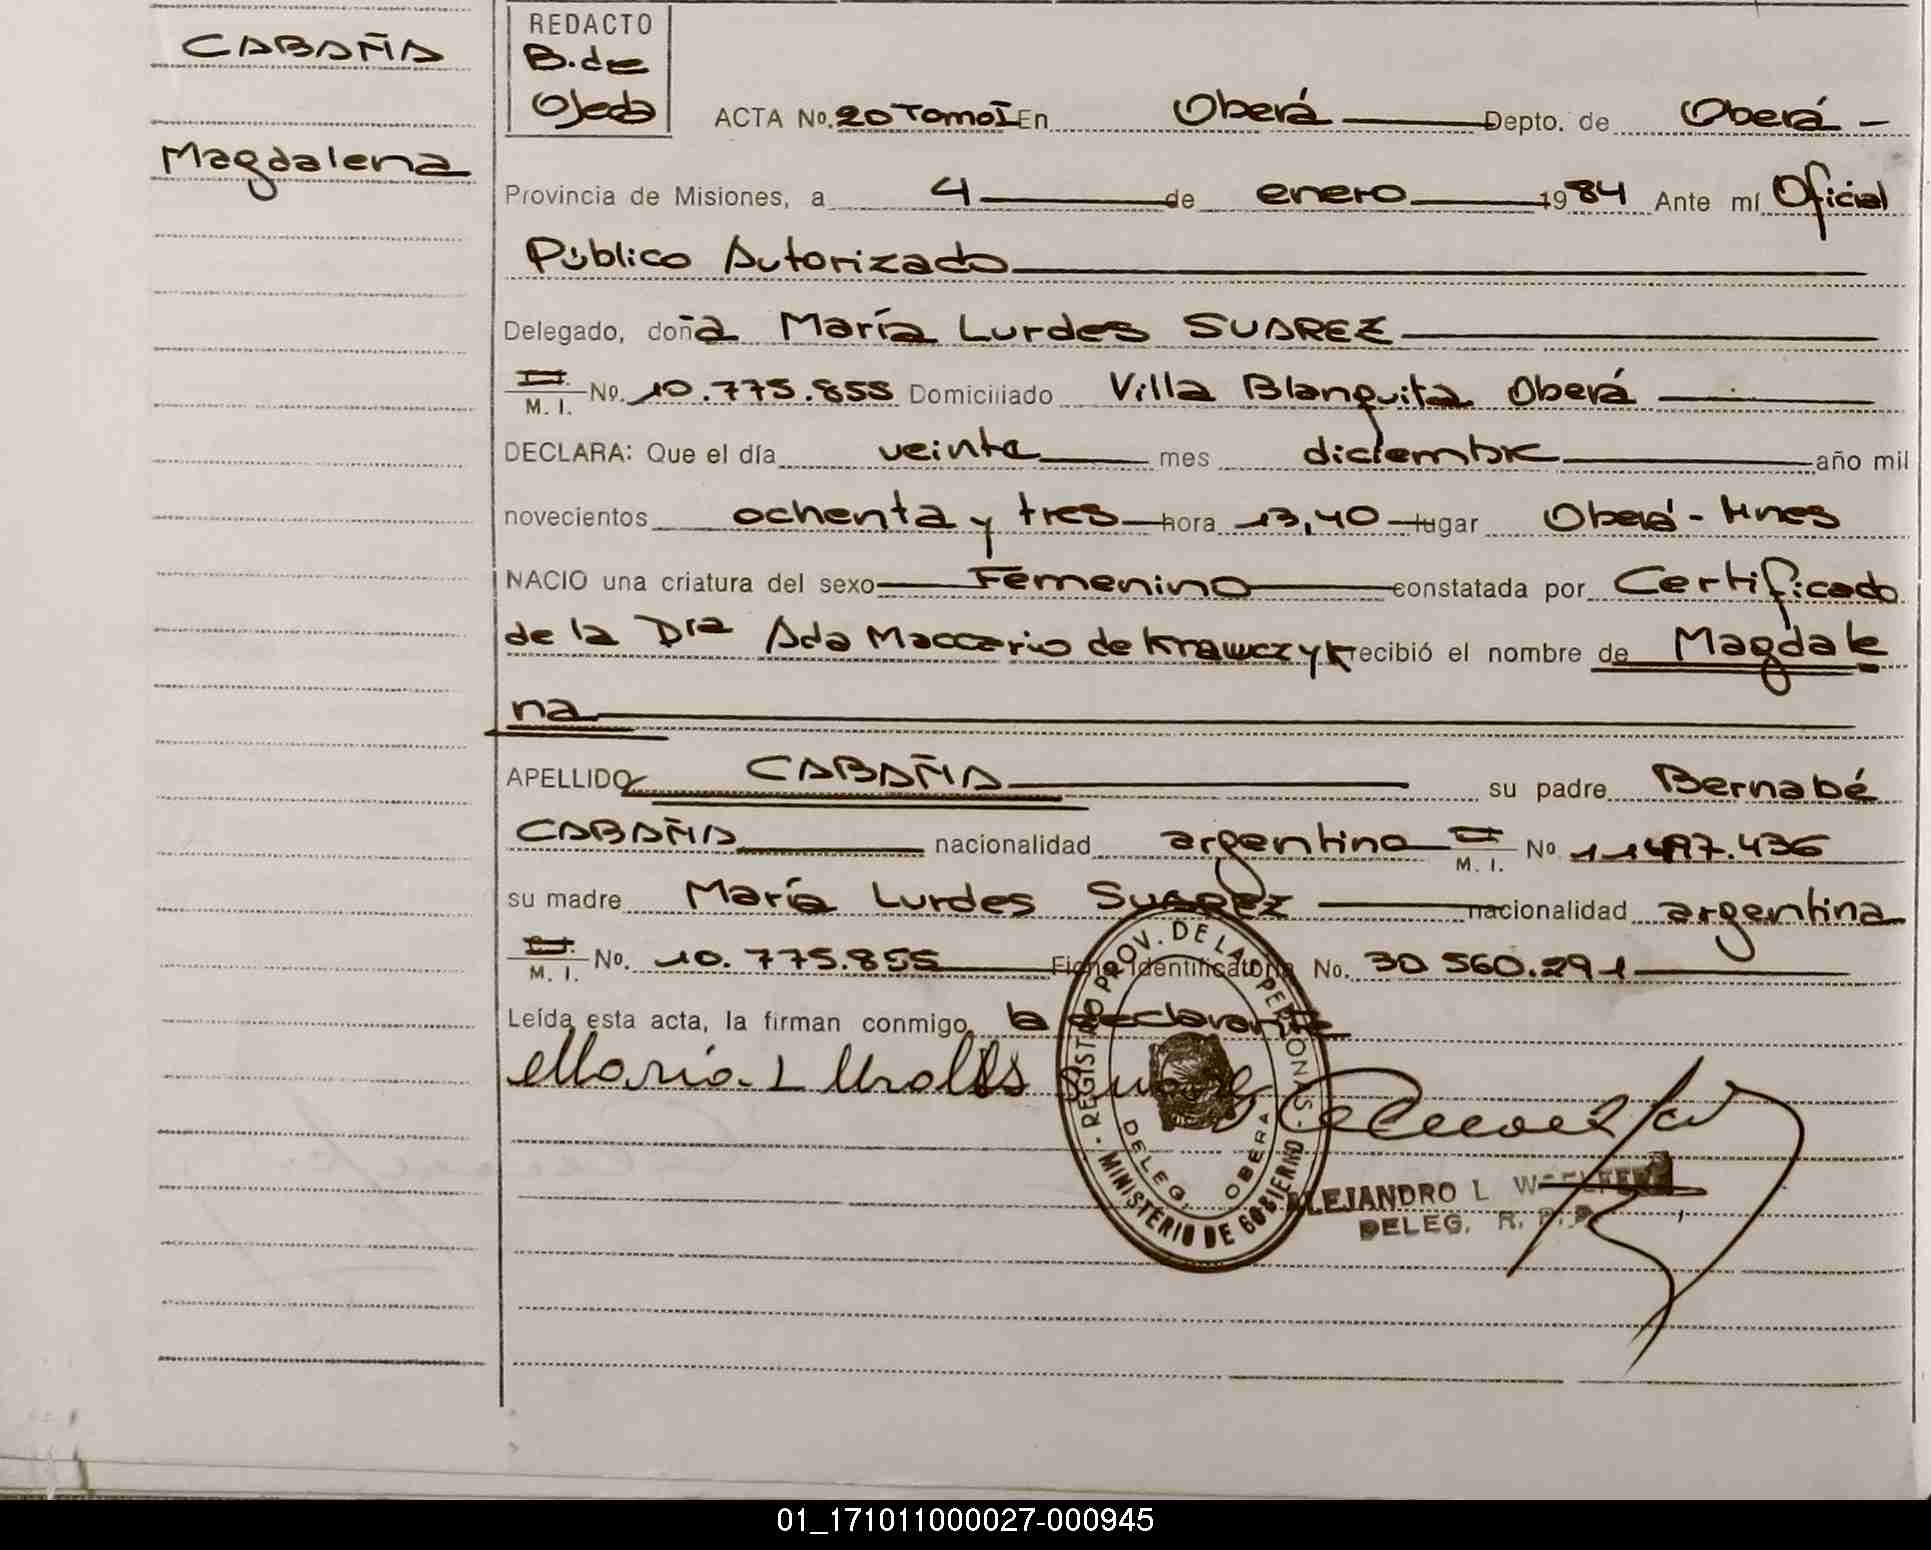 CABAÑA
Magdalena
REDACTO
B. de
Ojeda
ACTA No. 20 Tomo I En Oberá Depto. de Oberá -
Provincia de Misiones, a 4 de enero 1984 Ante mí Oficial
Público Autorizado
Delegado, doña María Lurdes SUAREZ
M. I. No. 10.775.855 Domiciliado Villa Blanquita Oberá
DECLARA: Que el día veinte mes diciembre año mil
novecientos ochenta y tres hora 13,40 lugar Oberá - Mnes
NACIO una criatura del sexo Femenino constatada por Certificado
de la Dra Ada Maccario de Krawczyk recibió el nombre de Magdale
na
APELLIDO CABAÑA su padre Bernabé
CABAÑA nacionalidad argentino M. I. No 11497.436
su madre María Lurdes SUAREZ nacionalidad argentina
M. I. No. 10.775.855 Ficha Identificatoria No. 30 560.291
Leída esta acta, la firman conmigo la declarante
REGISTRO PROV. DE LAS PERSONAS
DELEG. OBERA
MINISTERIO DE GOBIERNO
ALEJANDRO L
DELEG. R. P. P.
01_171011000027-000945